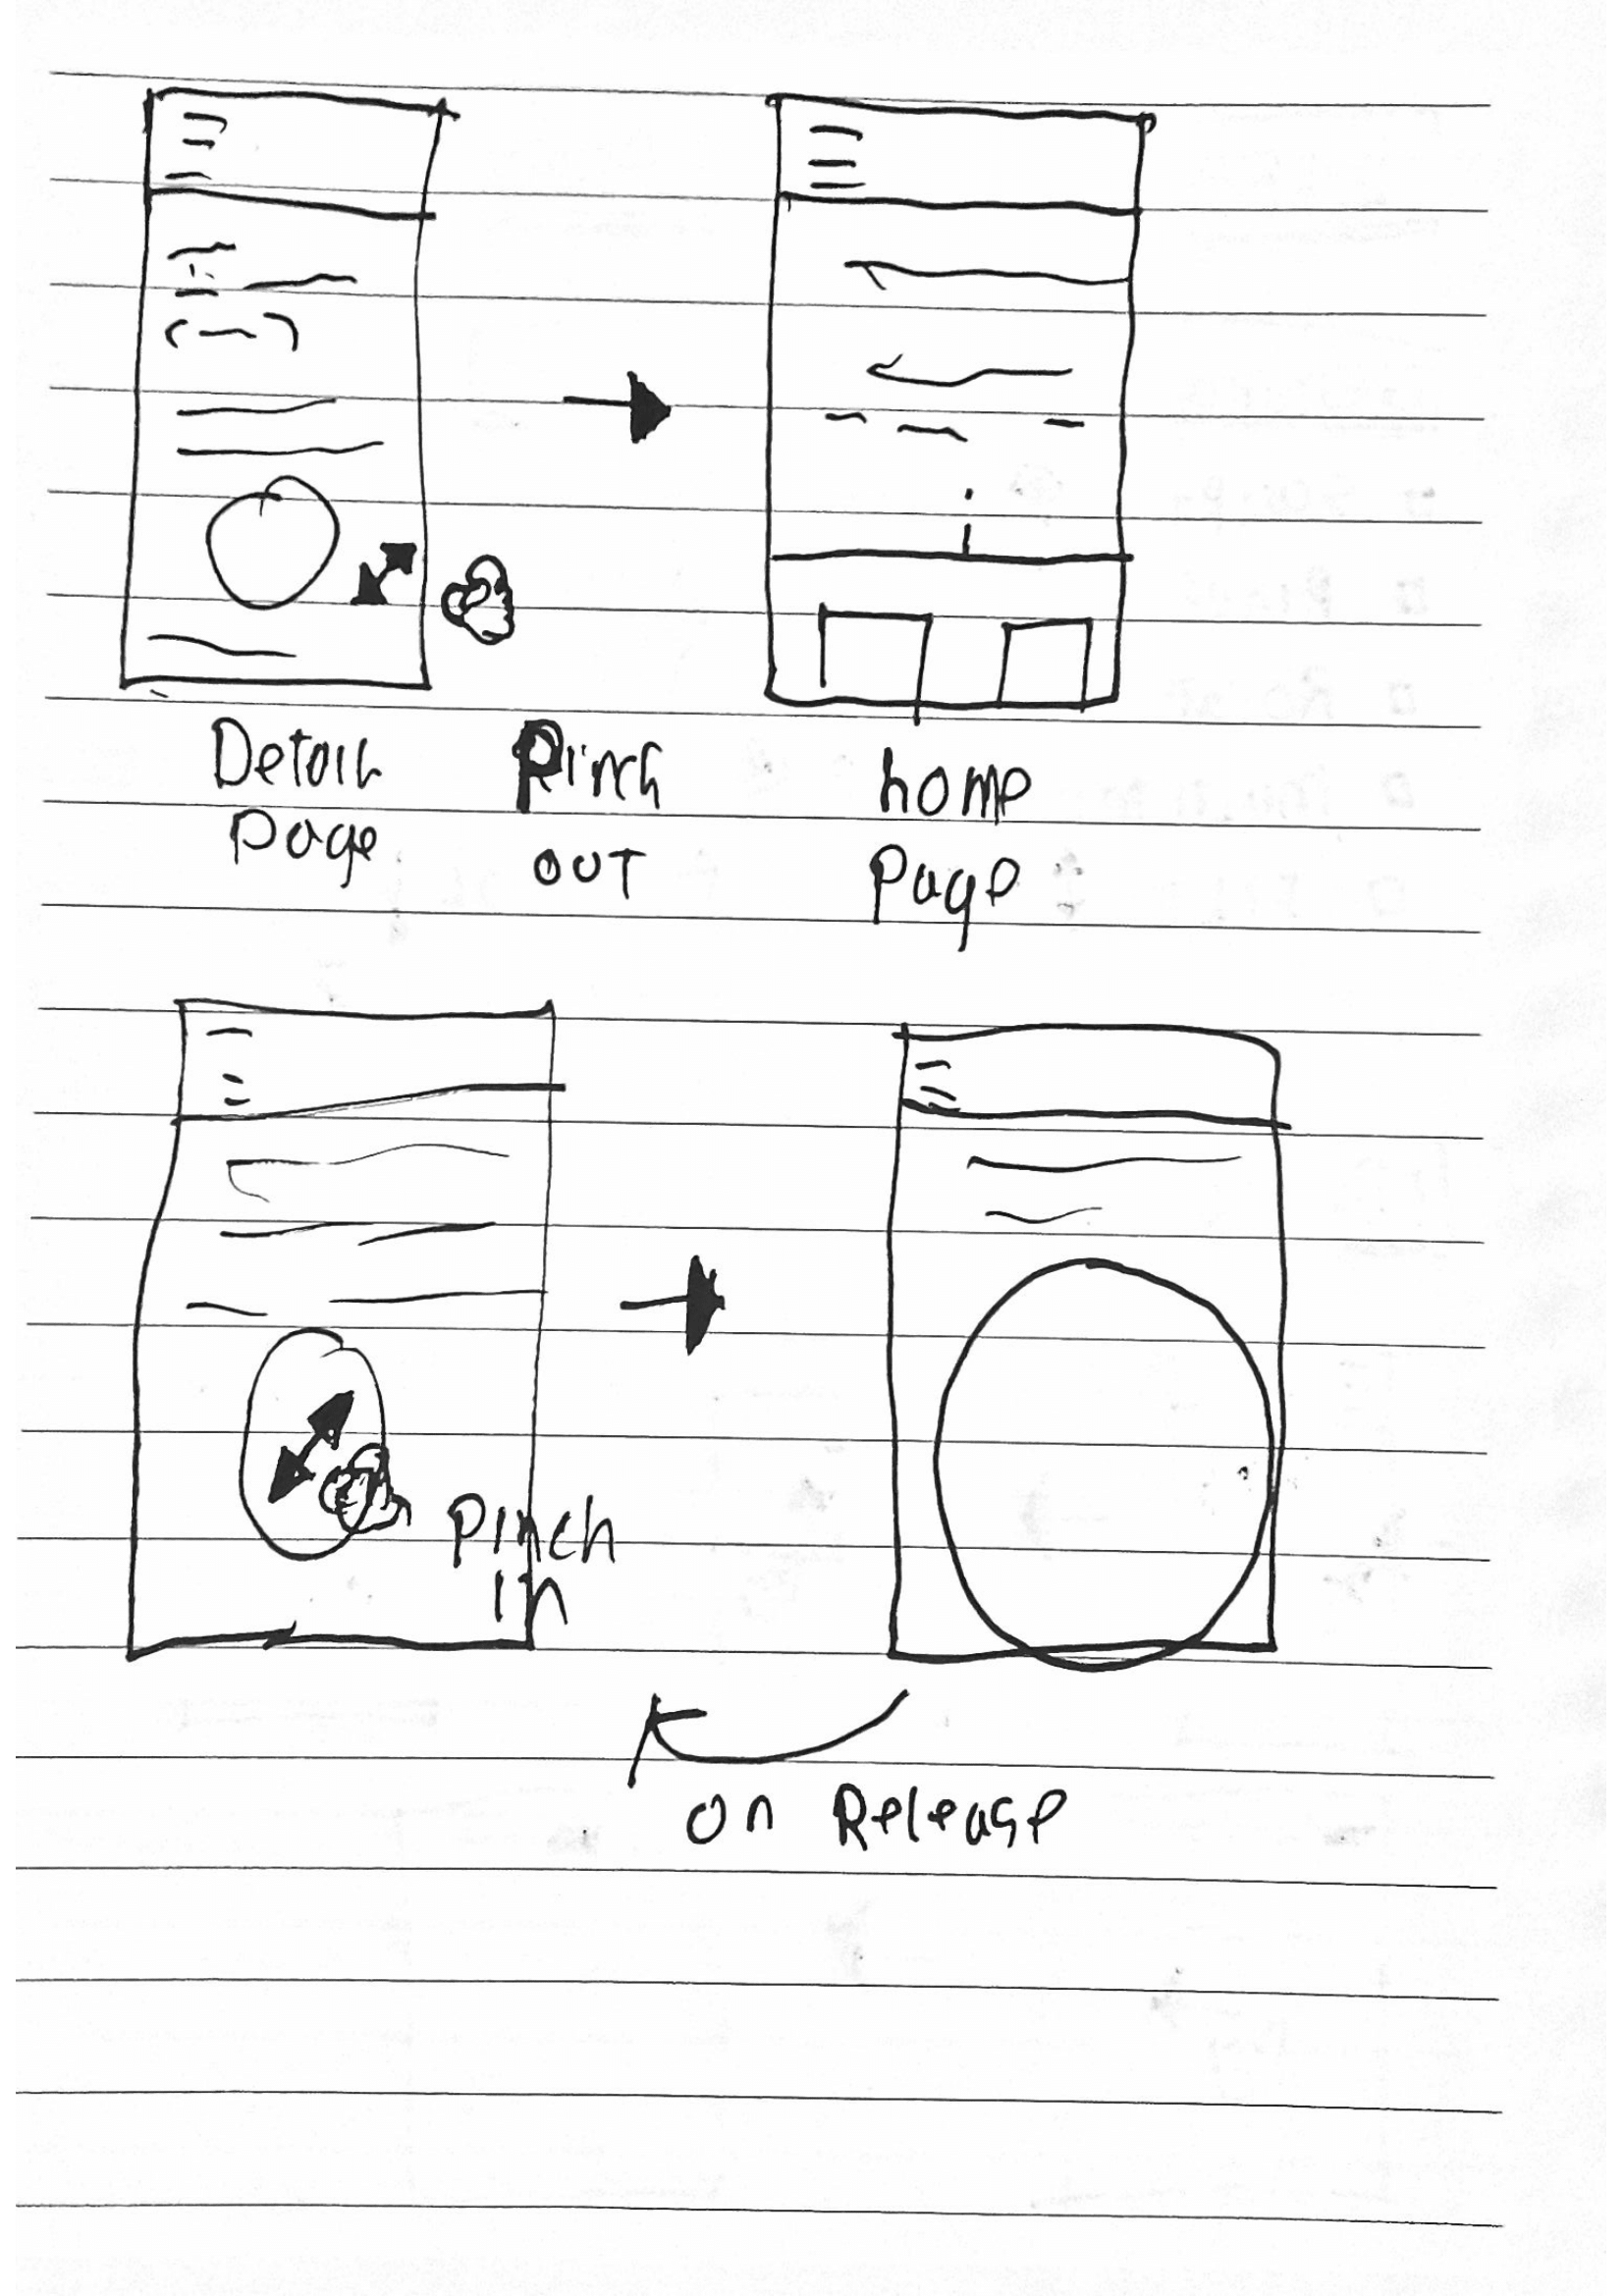 Detail
Page
Pinch
out
home
Page
Pinch
in
on Release